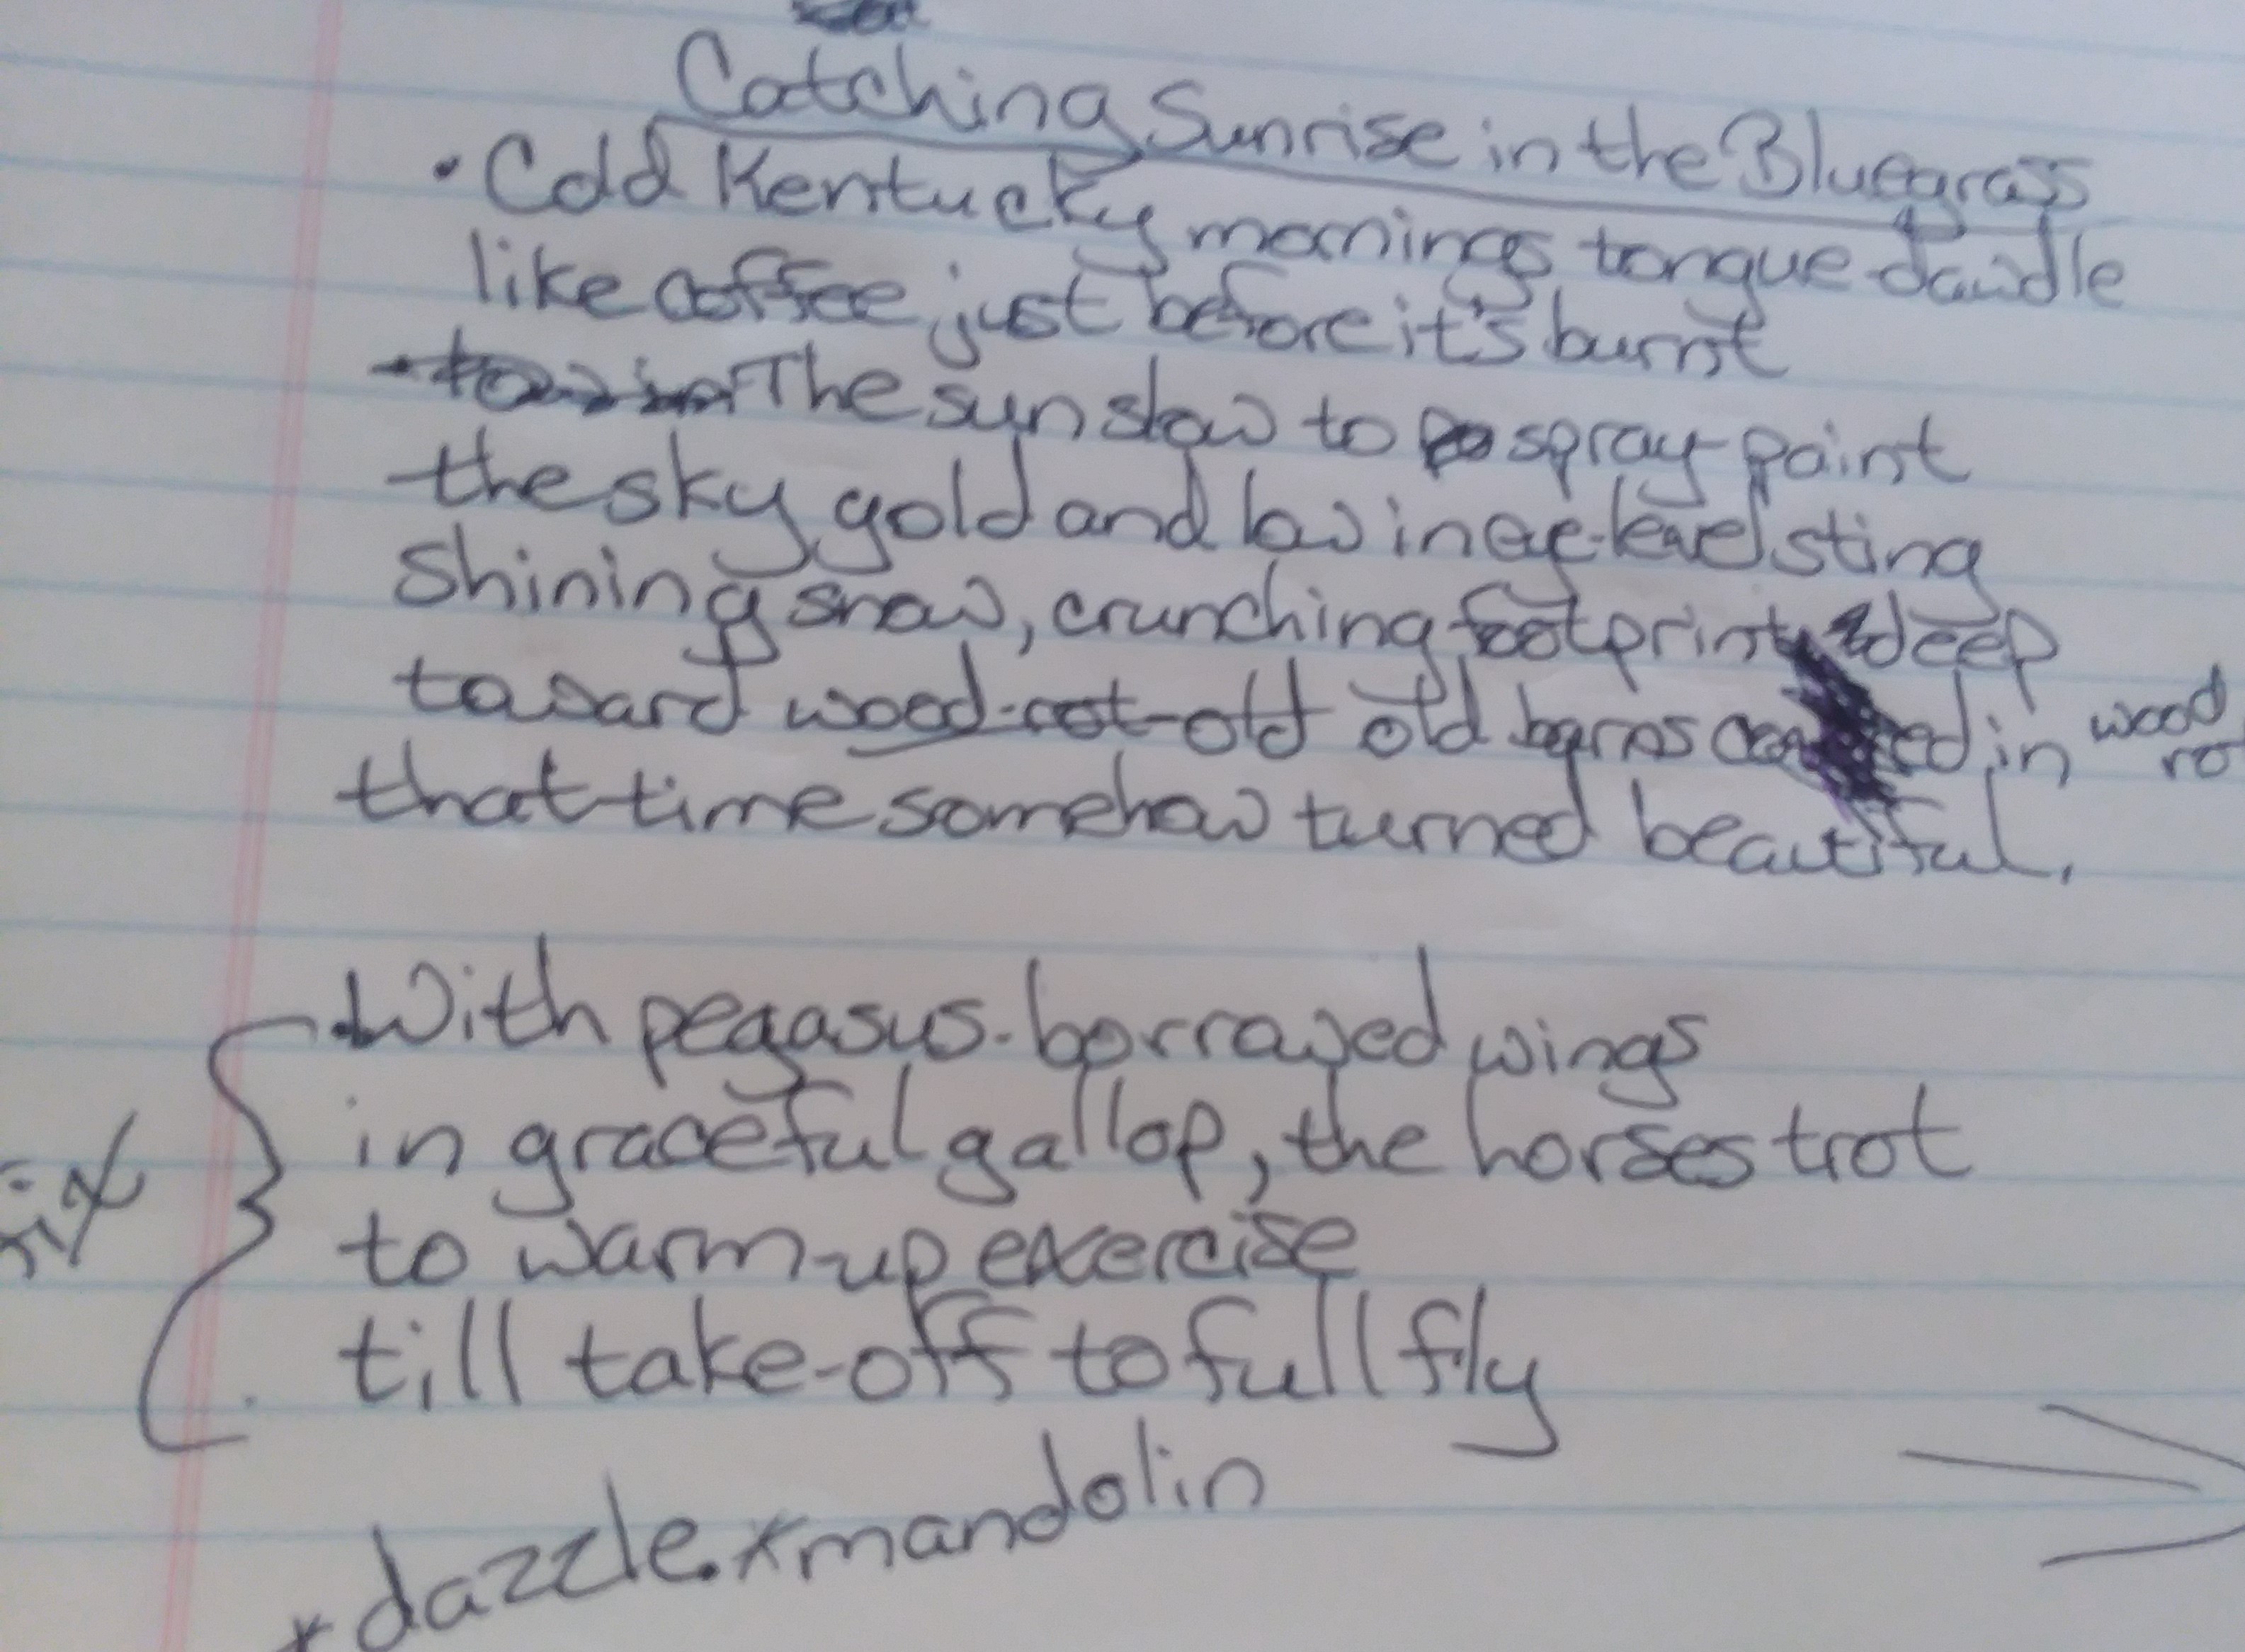 Catching Sunrise in the Bluegrass
• Cold Kentucky mornings tongue-dawdle
like coffee just before it's burnt
The sun slow to spray-paint
the sky gold and low in eye-level sting
shining snow, crunching footprint deep
toward wood-rot-old old barns in wood
that time somehow turned beautiful.
With pegasus-borrowed wings
in graceful gallop, the horses trot
to warm-up exercise
till take-off to full fly
* dazzle. * mandolin